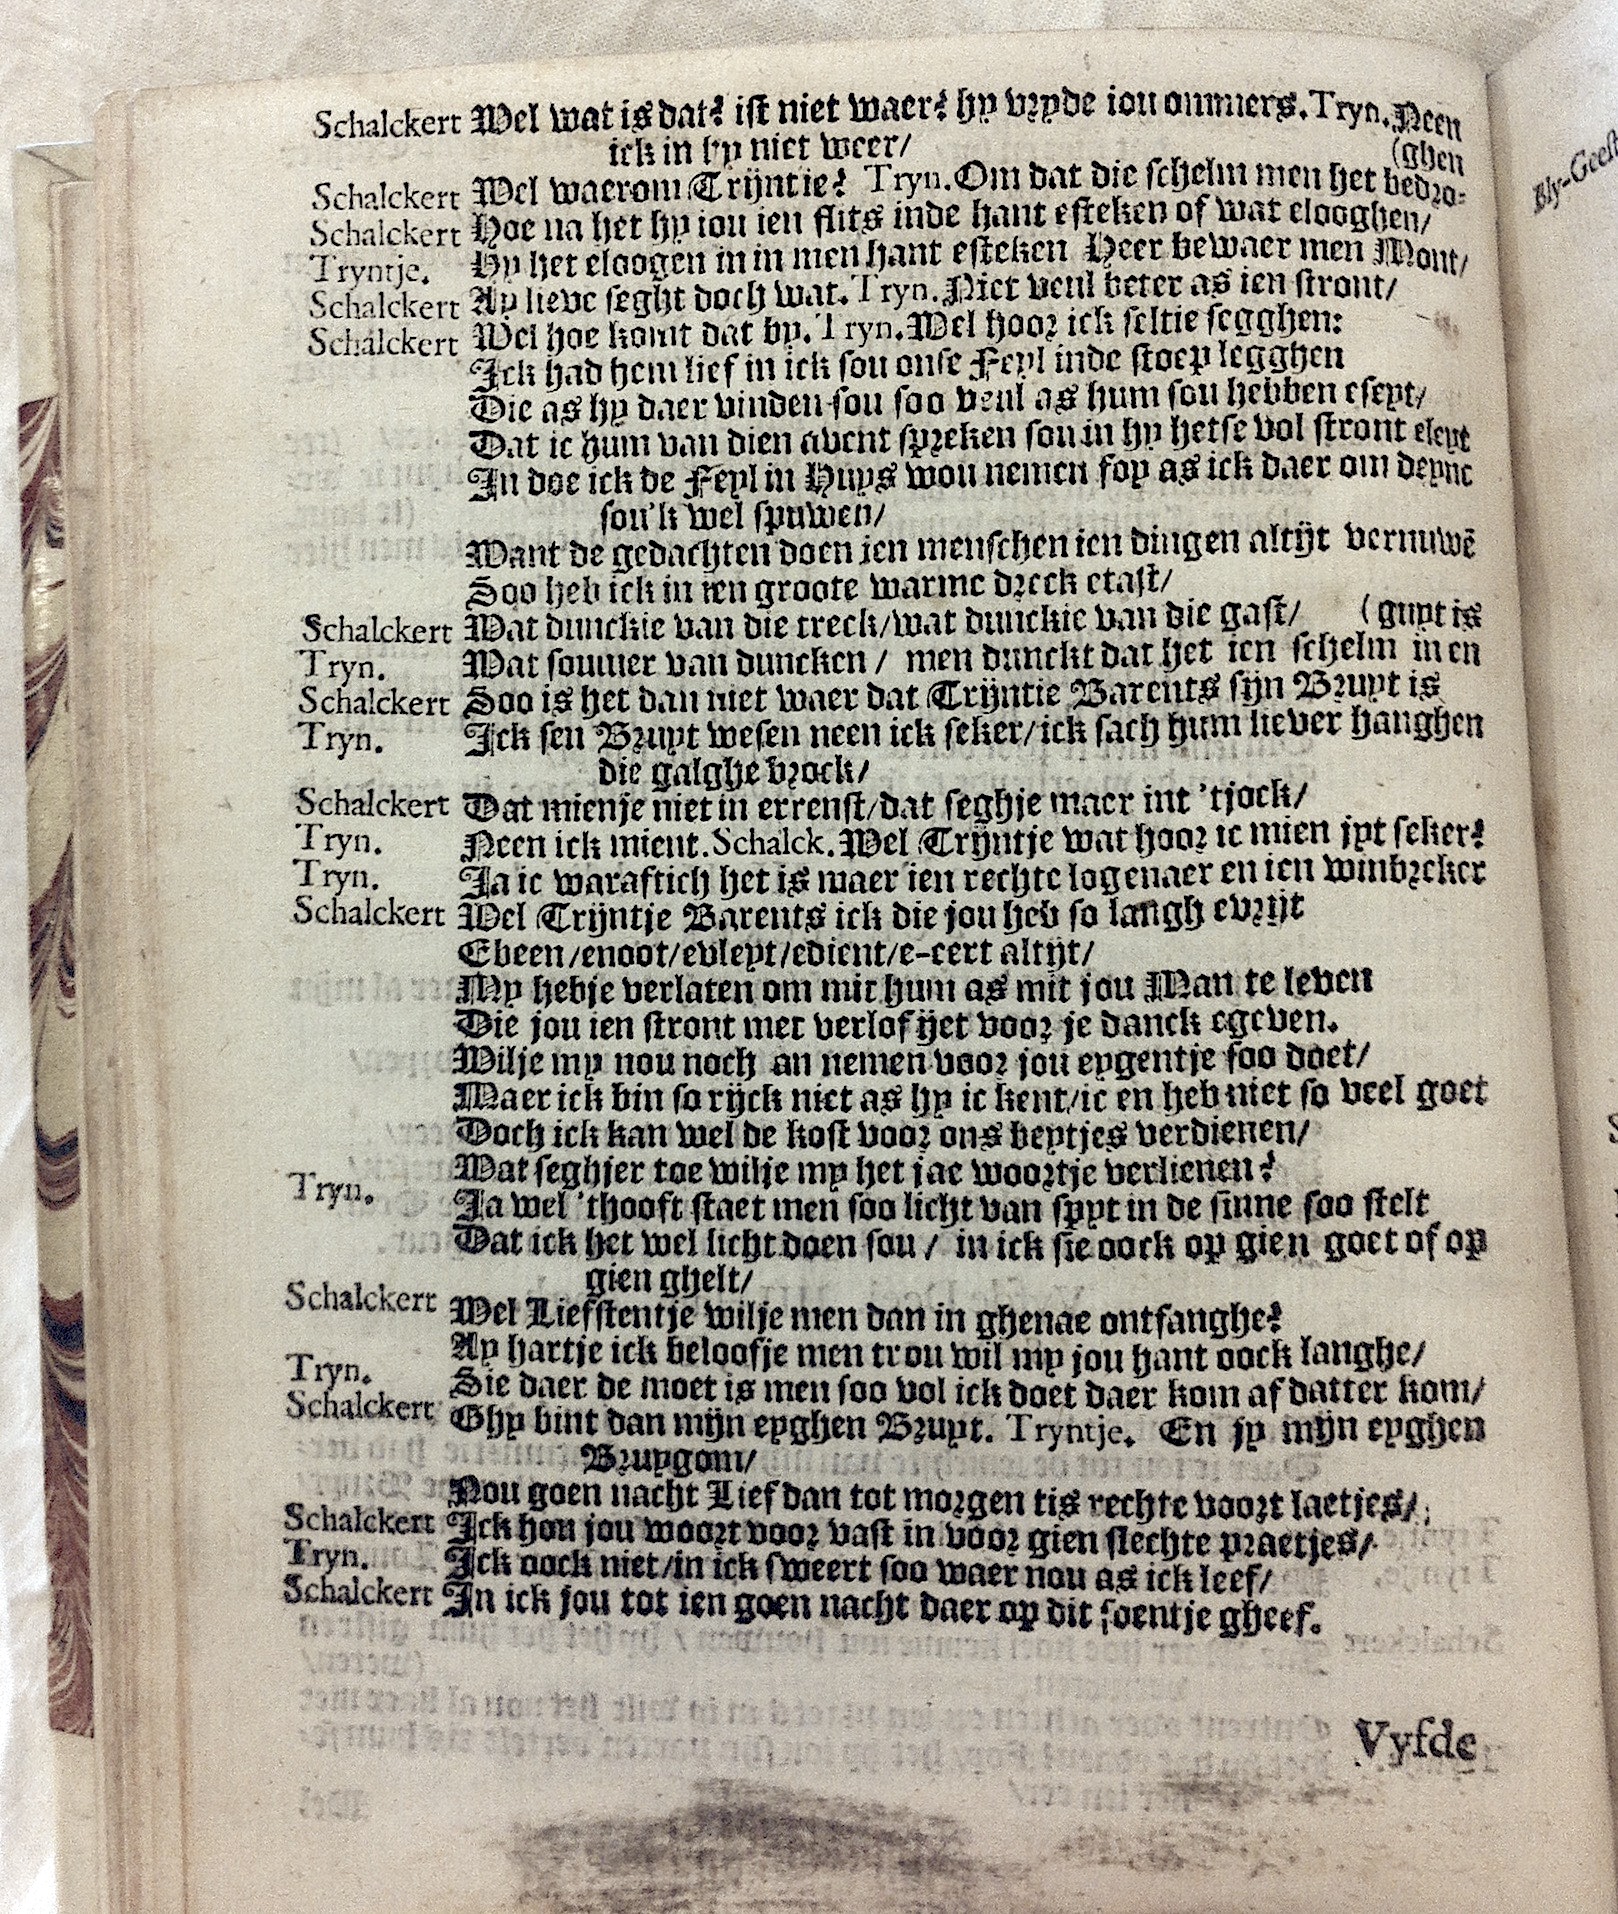 Schalckert Wel wat is dat? ist niet waer? hy vryde iou ommers. Tryn. Neen
ick in hy niet weer/ (ghen
Schalckert Wel waerom Trijntie? Tryn. Om dat die schelm men het bedro-
Schalckert Hoe na het hy iou ien flits inde hant esteken of wat elooghen/
Tryntje. Hy het eloogen in in men hant esteken Heer bewaer men Mont/
Schalckert Ay lieve seght doch wat. Tryn. Niet veul beter as ien stront/
Schalckert Wel hoe komt dat by. Tryn. Wel hoor ick seltie segghen:
Ick had hem lief in ick sou onse Feyl inde stoep legghen
Die as hy daer vinden sou soo veul as hum sou hebben eseyt/
Dat ic hum van dien avent spreken sou in hy hetse vol stront eleyt
In doe ick de Feyl in Huys wou nemen foy as ick daer om deync
sou'k wel spuwen/
Want de gedachten doen ien menschen ien dingen altijt vernuwē
Soo heb ick in ien groote warme dreck etast/
Schalckert Wat dunckie van die treck/wat dunckie van die gast/ (guyt is
Tryn. Wat souwer van duncken / men dunckt dat het ien schelm in en
Schalckert Soo is het dan niet waer dat Trijntie Barents sijn Bruyt is
Tryn. Ick sen Bruyt wesen neen ick seker/ick sach hum liever hanghen
die galghe brock/
Schalckert Dat mienje niet in errenst/dat seghje maer int 'tjock/
Tryn. Neen ick mient. Schalck. Wel Trijntje wat hoor ic mien jyt seker?
Tryn. Ja ic waraftich het is maer ien rechte logenaer en ien winbreker
Schalckert Wel Trijntje Barents ick die jou heb so langh evrijt
Ebeen/enoot/evleyt/edient/e-eert altijt/
My hebje verlaten om mit hum as mit jou Man te leven
Die jou ien stront met verlof ijet voor je danck egeven.
Wilje my nou noch an nemen voor jou eygentje soo doet/
Maer ick bin so rijck niet as hy ic kent/ic en heb niet so veel goet
Doch ick kan wel de kost voor ons beytjes verdienen/
Wat seghjer toe wilje my het jae woortje verlienen?
Tryn. Ja wel 'thooft staet men soo licht van spyt in de sinne soo stelt
Dat ick het wel licht doen sou / in ick sie oock op gien goet of op
gien ghelt/
Schalckert Wel Liefstentje wilje men dan in ghenae ontfanghe?
Ay hartje ick beloofje men trou wil my jou hant oock langhe/
Tryn. Sie daer de moet is men soo vol ick doet daer kom af datter kom/
Schalckert Ghy bint dan mijn eyghen Bruyt. Tryntje. En jy mijn eyghen
Bruygom/
Nou goen nacht Lief dan tot morgen tis rechte voort laetjes/
Schalckert Ick hou jou woort voor vast in voor gien slechte praetjes/
Tryn. Ick oock niet/in ick sweert soo waer nou as ick leef/
Schalckert In ick jou tot ien goen nacht daer op dit soentje gheef.
Vyfde
Bly-Geest